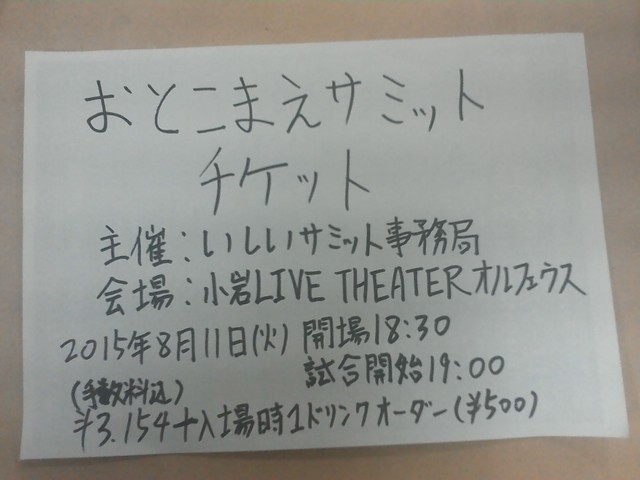 おとこまえサミット
チケット
主催:いしいサミット事務局
会場:小岩LIVE THEATERオルフェウス
2015年8月11日(火) 開場18:30
試合開始19:00
(手数料込)
¥3.154+入場時1ドリンクオーダー(¥500)